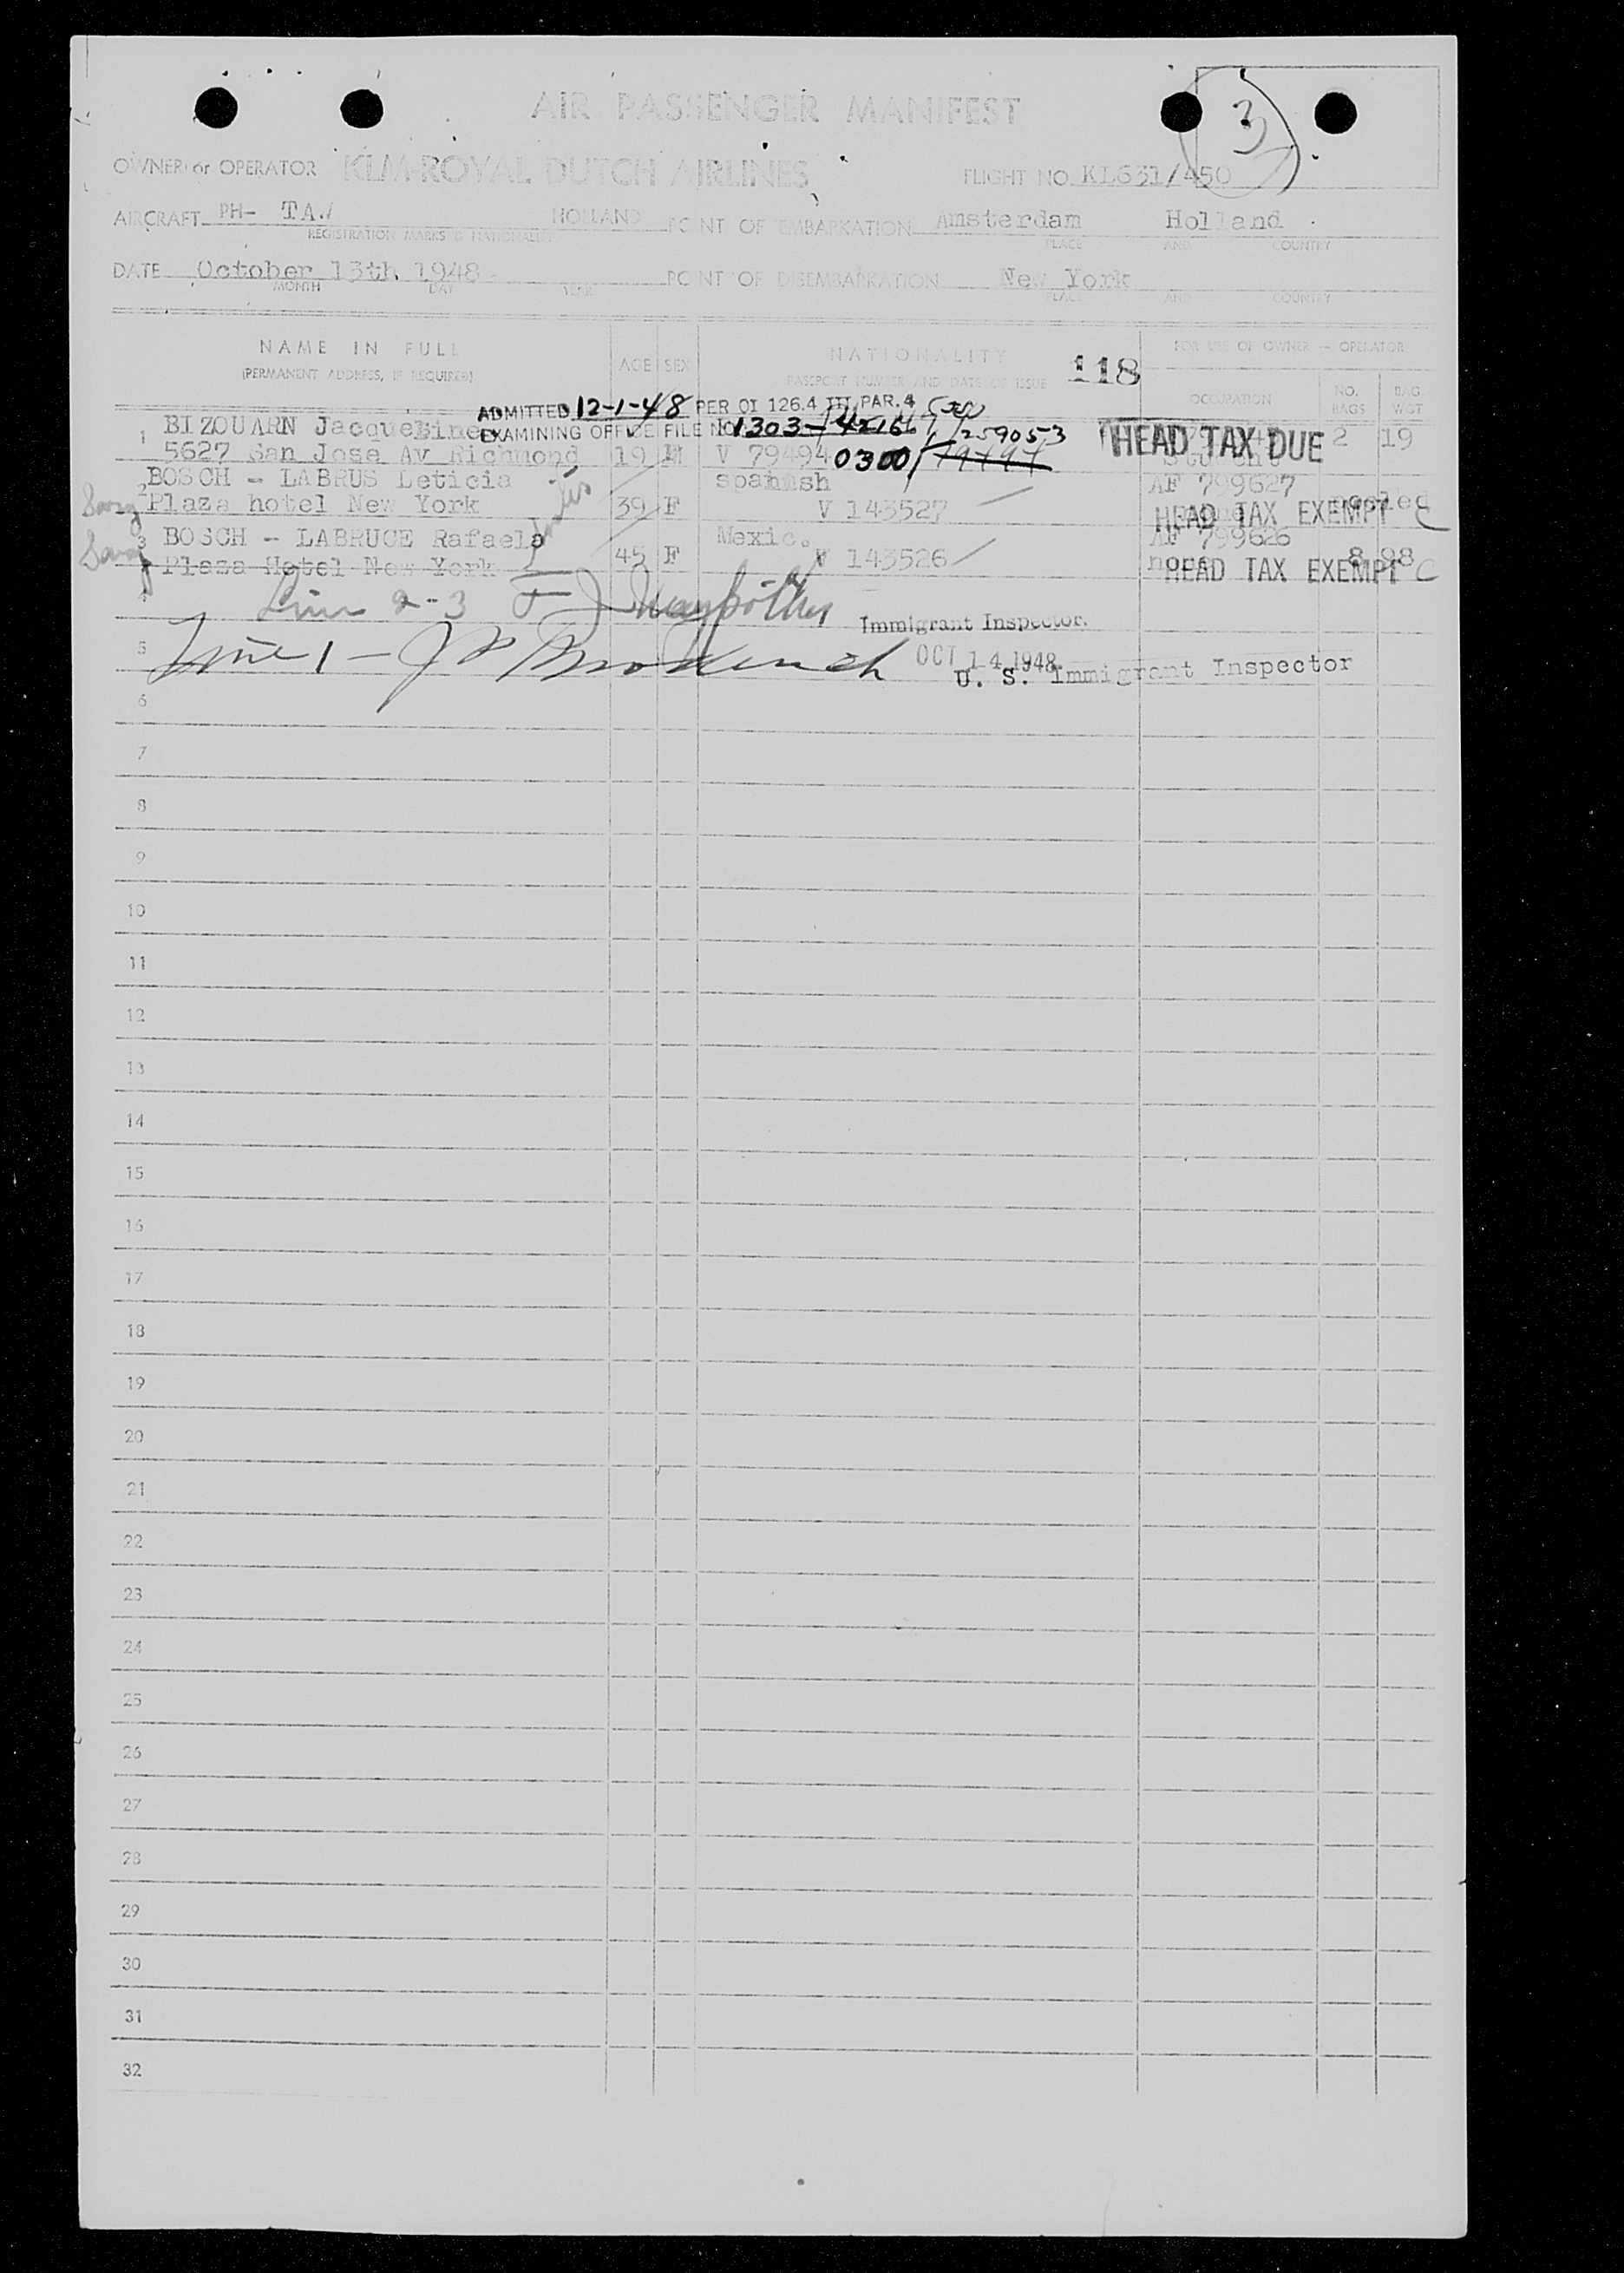 3
AIR PASSENGER MANIFEST
OWNER or OPERATOR KLM-ROYAL DUTCH AIRLINES FLIGHT NO. KL631/450
AIRCRAFT PH- TAW HOLLAND POINT OF EMBARKATION Amsterdam Holland
REGISTRATION MARKS & NATIONALITY PLACE AND COUNTRY
DATE October 13th 1948 POINT OF DISEMBARKATION New York
MONTH DAY YEAR PLACE AND COUNTRY
NAME IN FULL AGE SEX NATIONALITY 118 FOR USE OF OWNER — OPERATOR
(PERMANENT ADDRESS, IF REQUIRED) PASSPORT NUMBER AND DATE OF ISSUE OCCUPATION NO. BAGS BAG WGT
ADMITTED 12-1-48 PER OI 126.4 III PAR. 4
EXAMINING OFFICE FILE NO 1303- 259053
1 BIZOUARN Jacqueline HEAD TAX DUE 2 19
5627 San Jose Av Richmond 19 V 79494 0300/
2 BOSCH - LABRUS Leticia spanish AF 799627
Plaza hotel New York 39 F V 143527 HEAD TAX EXEMPT pooled
3 BOSCH - LABRUCE Rafaela Mexic. AF 799626
Plaza Hotel New York 45 F V 143526 none HEAD TAX EXEMPT 8 98
4 Line 2-3 Immigrant Inspector.
5 Line 1 - OCT 14 1948 U. S. Immigrant Inspector
6
7
8
9
10
11
12
13
14
15
16
17
18
19
20
21
22
23
24
25
26
27
28
29
30
31
32